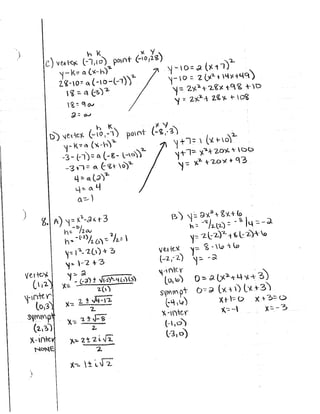 h K x y
C) vertex (-7,10) point (-10,28)
y-k=a(x-h)²
28-10=a(-10-(-7))²
18=a(-3)²
18=9a
2=a
y-10=2(x+7)²
y-10=2(x²+14x+49)
y=2x²+28x+98+10
y=2x²+28x+108
h K x y
D) vertex (-10,-7) point (-8,-3)
y-k=a(x-h)²
-3-(-7)=a(-8-(-10))²
-3+7=a(-8+10)²
4=a(2)²
4=a4
a=1
y+7=1(x+10)²
y+7=x²+20x+100
y=x²+20x+93
8. A) y=x²-2x+3
h=-b/2a
h=-(-2)/2(1)=2/2=1
y=1²-2(1)+3
y=1-2+3
y=2
vertex
(1,2)
y-inter
(0,3)
symmpt
(2,3)
x-inter
NONE
x=-(-2)±√(-2)²-4(1)(3)
2(1)
x=2±√4-12
2
x=2±√-8
2
x=2±2i√2
2
x=1±i√2
B) y=2x²+8x+6
h=-8/2(2)=-8/4=-2
y=2(-2)²+8(-2)+6
y=8-16+6
y=-2
vertex
(-2,-2)
y-inter
(0,6)
symmpt
(-4,6)
x-inter
(-1,0)
(-3,0)
0=2(x²+4x+3)
0=2(x+1)(x+3)
x+1=0 x+3=0
x=-1 x=-3